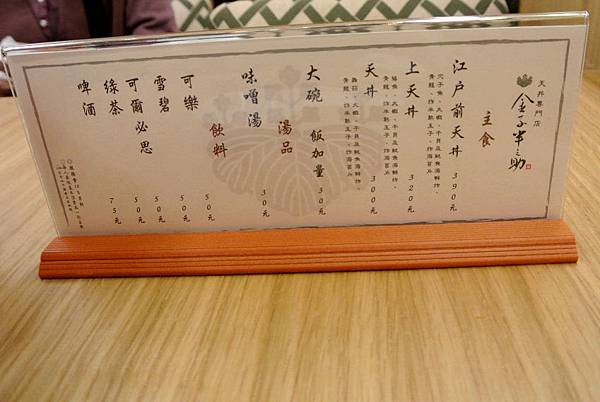 天丼專門店
金子半之助
主食
江戶前天丼 390元
穴子魚、大蝦、干貝及魷魚海鮮炸、
青龍、炸半熟玉子、炸海苔片
上天丼 320元
青龍、炸半熟玉子、炸海苔片
天丼 300元
青龍、炸半熟玉子、炸海苔片
大碗 飯加量 30元
湯品
味噌湯 30元
飲料
可樂 50元
雪碧 50元
可爾必思 50元
綠茶 50元
啤酒 75元